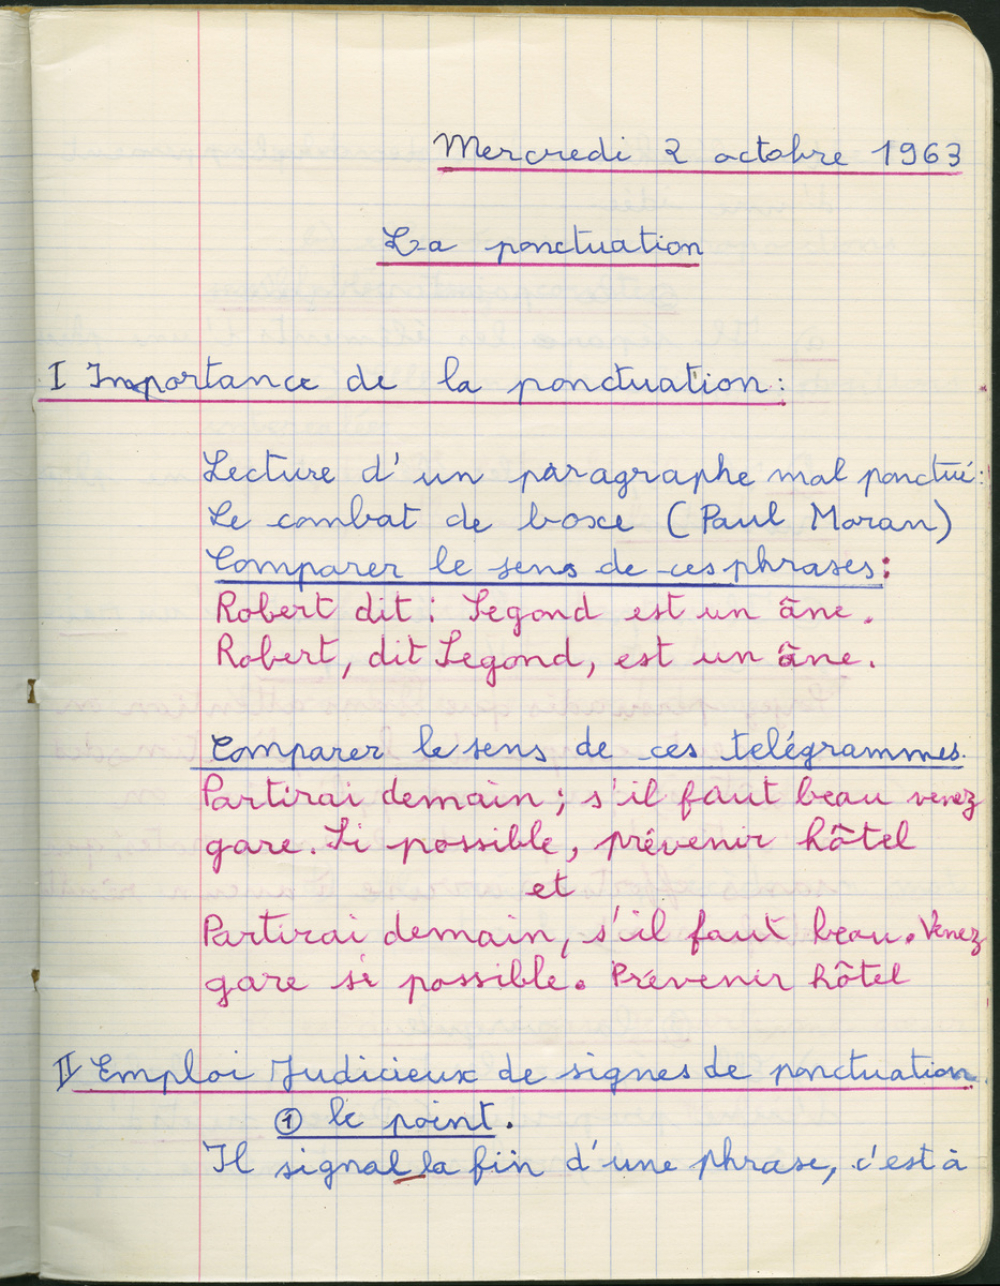 Mercredi 2 octobre 1963
La ponctuation
I Importance de la ponctuation:
Lecture d'un paragraphe mal ponctué:
Le combat de boxe (Paul Moran)
Comparer le sens de ces phrases:
Robert dit: Segond est un âne.
Robert, dit Segond, est un âne.
Comparer le sens de ces telégrammes.
Partirai demain; s'il faut beau venez
gare. Si possible, prévenir hôtel
et
Partirai demain, s'il faut beau. Venez
gare si possible. Prévenir hôtel
II Emploi Judicieux de signes de ponctuation.
① le point.
Il signal la fin d'une phrase, c'est à